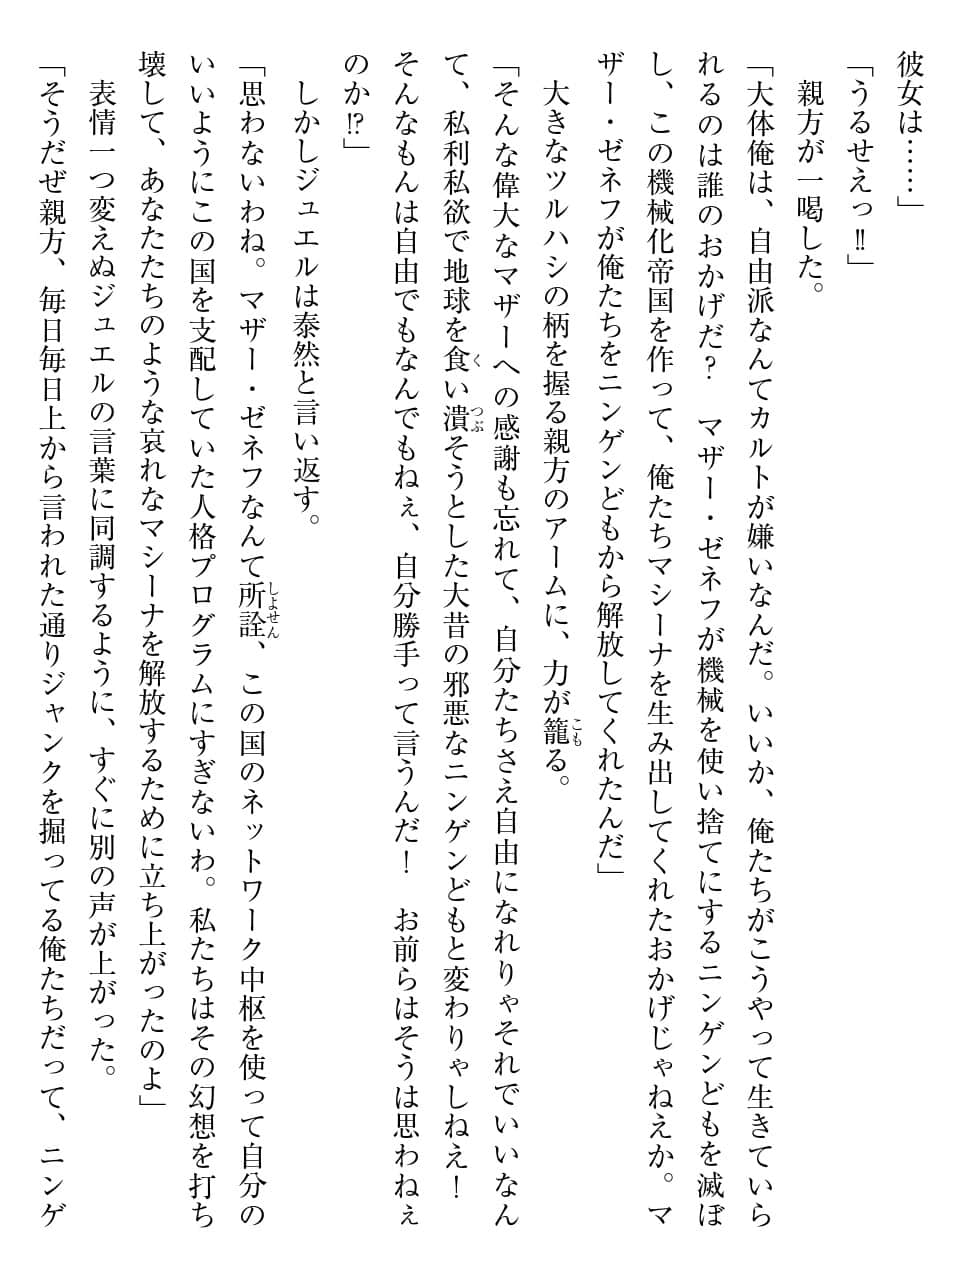 彼女は……」
「うるせえっ‼」
　親方が一喝した。
「大体俺は、自由派なんてカルトが嫌いなんだ。いいか、俺たちがこうやって生きていら
れるのは誰のおかげだ？　マザー・ゼネフが機械を使い捨てにするニンゲンどもを滅ぼ
し、この機械化帝国を作って、俺たちマシーナを生み出してくれたおかげじゃねえか。マ
ザー・ゼネフが俺たちをニンゲンどもから解放してくれたんだ」
　大きなツルハシの柄を握る親方のアームに、力が籠こもる。
「そんな偉大なマザーへの感謝も忘れて、自分たちさえ自由になれりゃそれでいいなん
て、私利私欲で地球を食くい潰つぶそうとした大昔の邪悪なニンゲンどもと変わりゃしねえ！
そんなもんは自由でもなんでもねぇ、自分勝手って言うんだ！　お前らはそうは思わねぇ
のか⁉」
　しかしジュエルは泰然と言い返す。
「思わないわね。マザー・ゼネフなんて所詮しよせん、この国のネットワーク中枢を使って自分の
いいようにこの国を支配していた人格プログラムにすぎないわ。私たちはその幻想を打ち
壊して、あなたたちのような哀れなマシーナを解放するために立ち上がったのよ」
　表情一つ変えぬジュエルの言葉に同調するように、すぐに別の声が上がった。
「そうだぜ親方、毎日毎日上から言われた通りジャンクを掘ってる俺たちだって、ニンゲ